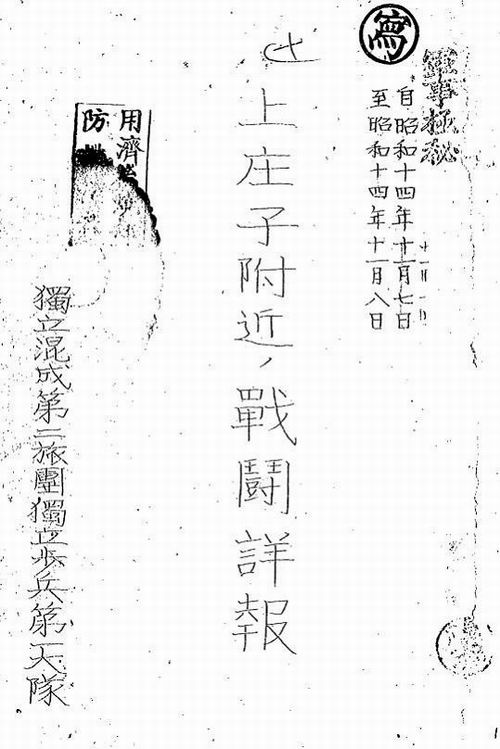 軍事極秘
寫
自昭和十四年十一月七日
至昭和十四年十一月八日
上庄子附近ノ戰鬪詳報
用濟
防
獨立混成第二旅團獨立歩兵第一大隊